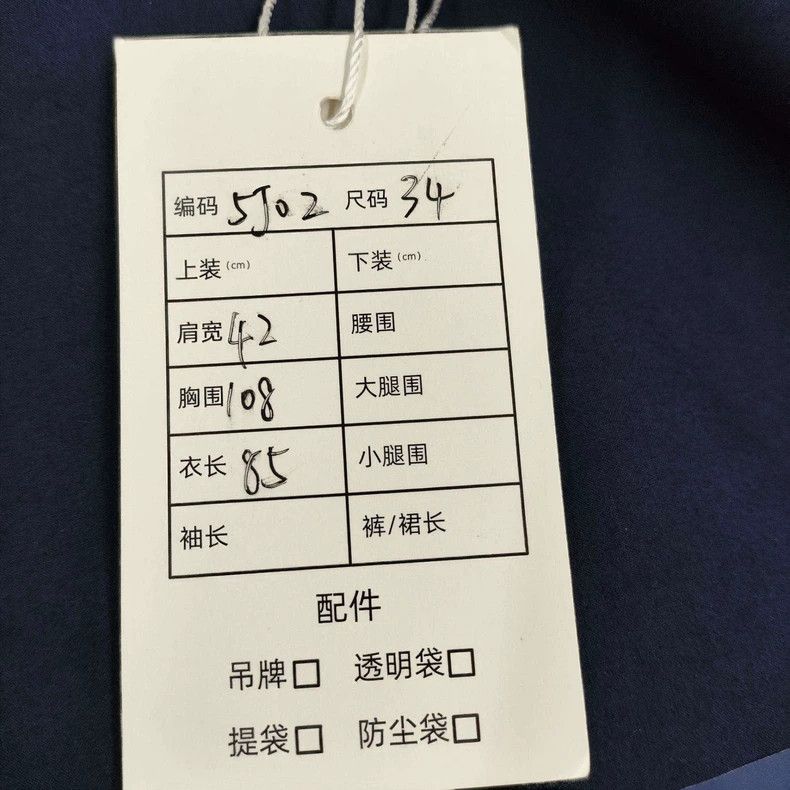 编码 5J02 尺码 34
上装 (cm) 下装 (cm)
肩宽 42 腰围
胸围 108 大腿围
衣长 85 小腿围
袖长 裤/裙长
配件
吊牌□ 透明袋□
提袋□ 防尘袋□